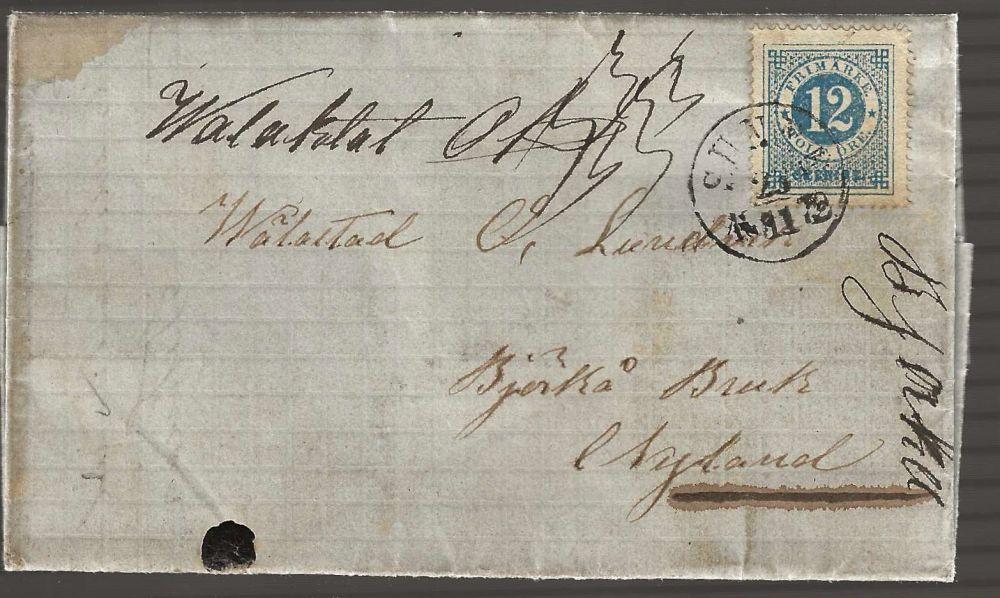 Walaktat
FRIMÄRKE
12
TOLF ÖRE
SVERIGE
SUN
23
11
Wälastad C, Lundin
Björkå Bruk
Nyland
Bjorka